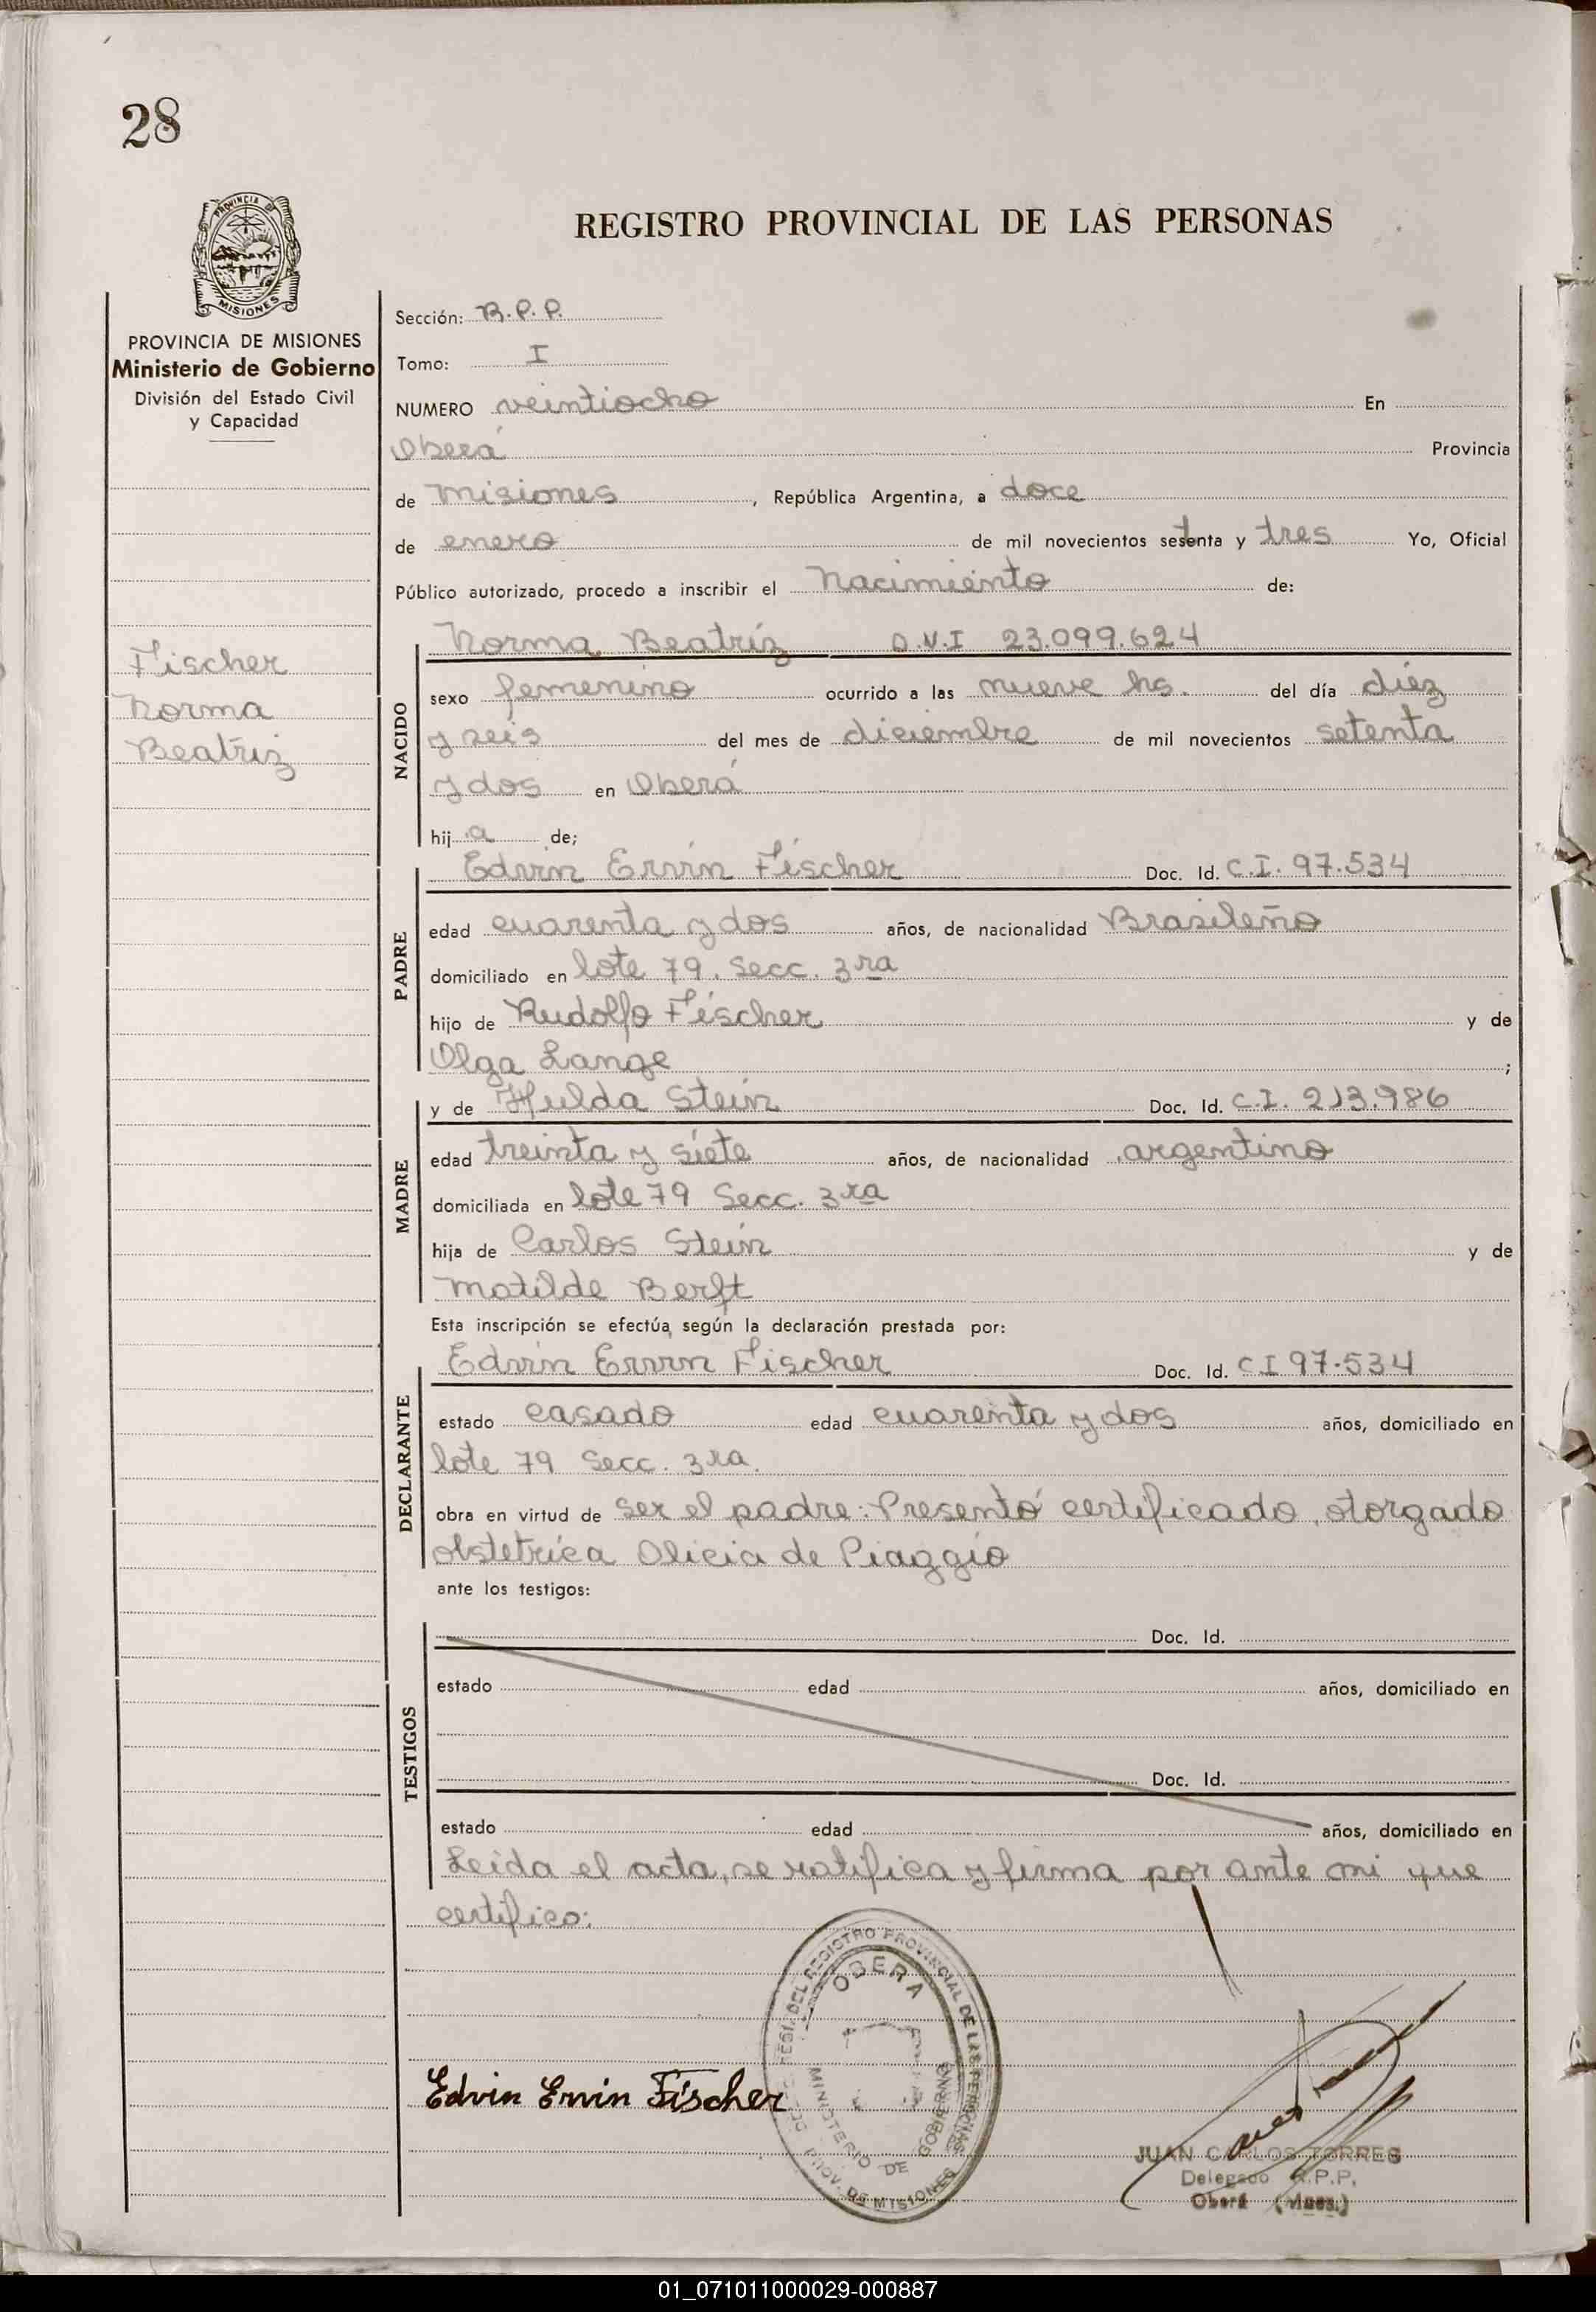 28
PROVINCIA DE
MISIONES
REGISTRO PROVINCIAL DE LAS PERSONAS
PROVINCIA DE MISIONES
Ministerio de Gobierno
División del Estado Civil
y Capacidad
Fischer
Norma
Beatriz
Sección: R.P.P.
Tomo: I
NUMERO veintiocho En
Oberá Provincia
de Misiones, República Argentina, a doce
de enero de mil novecientos setenta y tres Yo, Oficial
Público autorizado, procedo a inscribir el Nacimiento de:
NACIDO
Norma Beatriz D.N.I 23.099.624
sexo femenino ocurrido a las nueve hs. del día diéz
y seis del mes de diciembre de mil novecientos setenta
y dos en Oberá
hij a de;
PADRE
Edvin Ervin Fischer Doc. Id. C.I. 97.534
edad cuarenta y dos años, de nacionalidad Brasileño
domiciliado en lote 79. Secc. 3ra
hijo de Rudolfo Fischer y de
Olga Lange ;
MADRE
y de Hulda Stein Doc. Id. C.I. 213.986
edad treinta y siete años, de nacionalidad argentino
domiciliada en lote 79 Secc. 3ra
hija de Carlos Stein y de
Matilde Berft
Esta inscripción se efectúa según la declaración prestada por:
DECLARANTE
Edvin Ervin Fischer Doc. Id. C I 97.534
estado casado edad cuarenta y dos años, domiciliado en
lote 79 Secc. 3ra.
obra en virtud de ser el padre: Presentó certificado, otorgado
obstetrica Olicia de Piaggio
ante los testigos:
TESTIGOS
Doc. Id.
estado edad años, domiciliado en
Doc. Id.
estado edad años, domiciliado en
Leida el acta, se ratifica y firma por ante mi que
certifico:
REGISTRO PROVINCIAL DE LAS PERSONAS
OBERA
MINISTERIO DE GOBIERNO
PROV. DE MISIONES
Edvin Ervin Fischer
JUAN CARLOS TORRES
Delegado R.P.P.
Oberá (Mnes.)
01_071011000029-000887